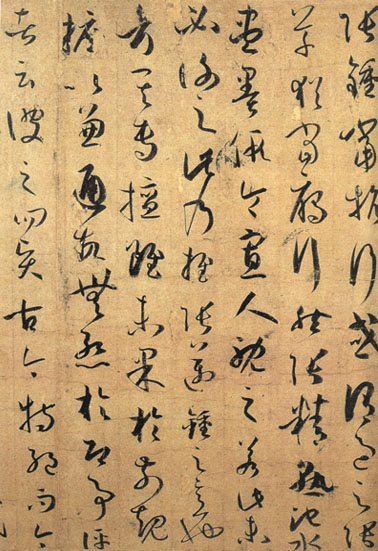 張鍾當抗行或謂過之張
草猶當雁行然張精熟池水
盡墨假令寡人耽之若此未
必謝之此乃推張邁鍾之意也
考其專擅雖未果於前規
摭以兼通故無慙於即事評
者云彼之四賢古今特絕而今